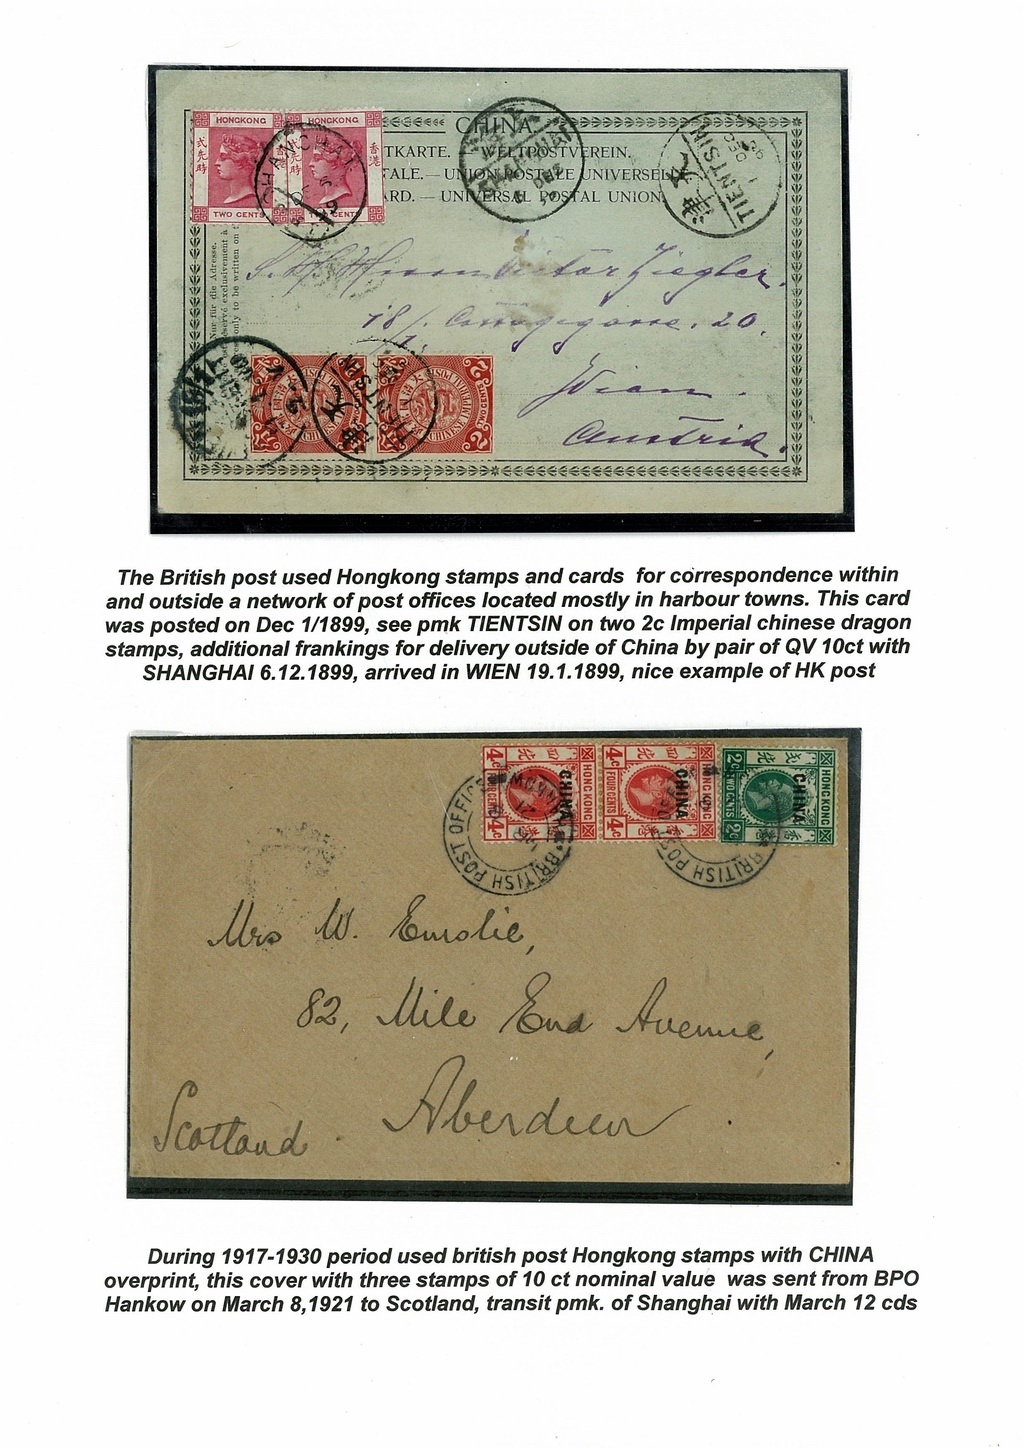 HONGKONG HONGKONG
TWO CENTS TWO CENTS
CHINA.
TKARTE. — WELTPOSTVEREIN.
TALE. — UNION POSTALE UNIVERSELLE
ARD. — UNIVERSAL POSTAL UNION.
SHANGHAI
TIENTSIN
Nur für die Adresse.
only to be written on
Herrn Victor Ziegler.
20.
Wien.
Austria.
TIENTSIN
2 2
The British post used Hongkong stamps and cards for correspondence within
and outside a network of post offices located mostly in harbour towns. This card
was posted on Dec 1/1899, see pmk TIENTSIN on two 2c Imperial chinese dragon
stamps, additional frankings for delivery outside of China by pair of QV 10ct with
SHANGHAI 6.12.1899, arrived in WIEN 19.1.1899, nice example of HK post
4c HONG KONG FOUR CENTS CHINA 4c
4c HONG KONG FOUR CENTS CHINA 4c
2c HONG KONG TWO CENTS CHINA 2c
BRITISH POST OFFICE HANKOW
BRITISH POST
Mrs W. Emslie,
82, Mile End Avenue,
Aberdeen
Scotland.
During 1917-1930 period used british post Hongkong stamps with CHINA
overprint, this cover with three stamps of 10 ct nominal value was sent from BPO
Hankow on March 8,1921 to Scotland, transit pmk. of Shanghai with March 12 cds